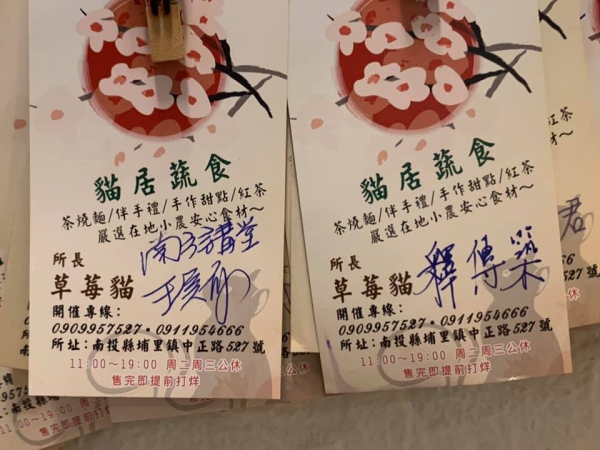 貓居蔬食
茶燒麵/伴手禮/手作甜點/紅茶
嚴選在地小農安心食材~
南方講堂
所長
草莓貓
開催專線:
0909957527·0911954666
所址:南投縣埔里鎮中正路527號
11:00~19:00 周二周三公休
售完即提前打烊
貓居蔬食
茶燒麵/伴手禮/手作甜點/紅茶
嚴選在地小農安心食材~
所長
草莓貓
釋傳築
開催專線:
0909957527·0911954666
所址:南投縣埔里鎮中正路527號
11:00~19:00 周二周三公休
售完即提前打烊
紅茶
君
527號
公休